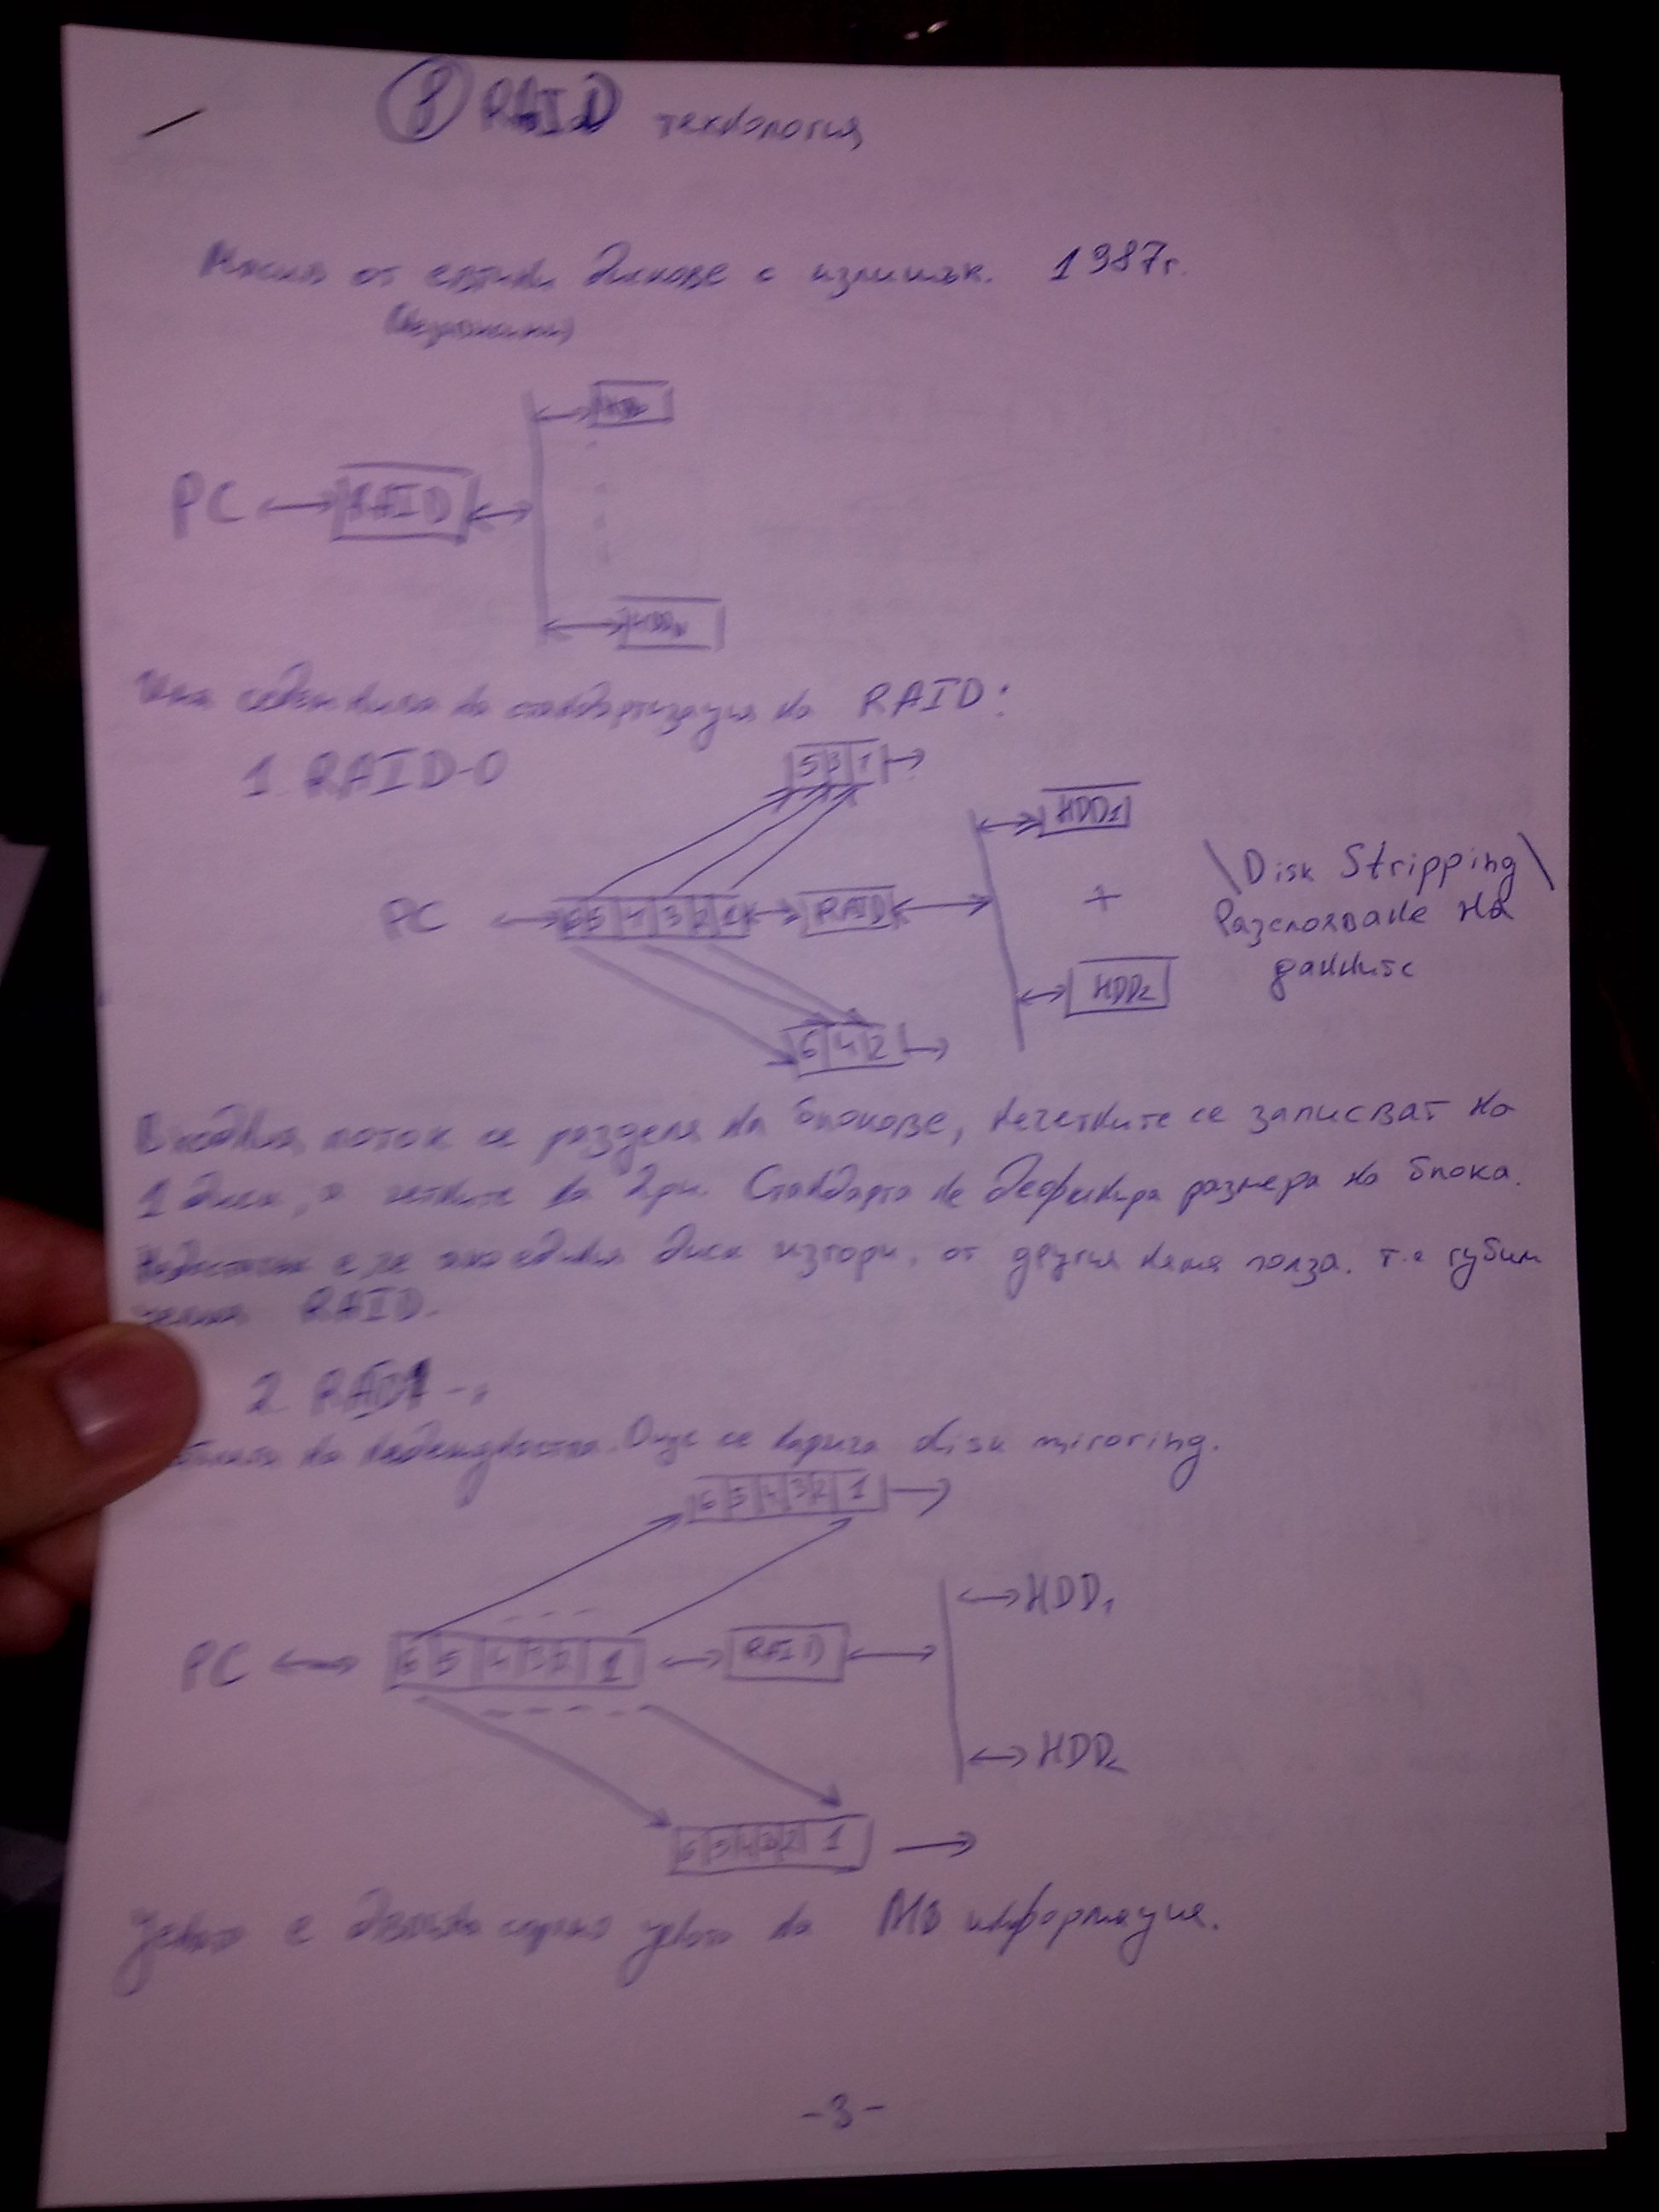 ⑧ RAID технология
Масив от евтини дискове с излишък. 1987г.
(Независими)
HDD
PC RAID
HDDn
Има седем нива на стандартизация на RAID:
1. RAID-0
5 3 1
HDD1
\Disk Stripping\
PC 6 5 4 3 2 1 RAID + Разслояване на
HDD2 данните
6 4 2
Входния поток се разделя на блокове, нечетните се записват на
1 диск, а четните на 2ри. Стандарта не дефинира размера на блока.
Недостатък е че ако единия диск изгори, от другия няма полза. т.е губим
целия RAID.
2 RAID1 -
на надеждността. Още се нарича disk miroring.
6 5 4 3 2 1
HDD1
PC 6 5 4 3 2 1 RAID
HDD2
6 5 4 3 2 1
Цената е двойно спрямо цената на MB информация.
-3-